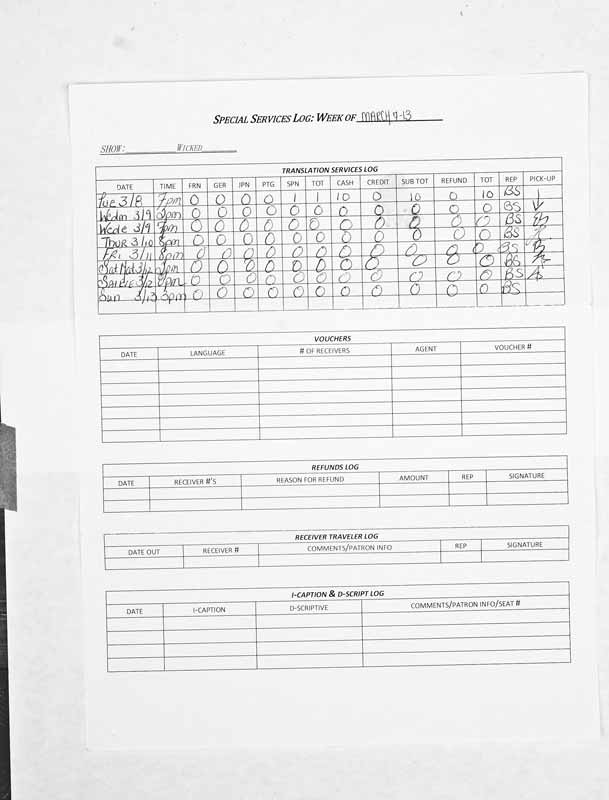 SPECIAL SERVICES LOG: WEEK OF MARCH 7-13
SHOW: WICKED
TRANSLATION SERVICES LOG
DATE TIME FRN GER JPN PTG SPN TOT CASH CREDIT SUB TOT REFUND TOT REP PICK-UP
Tue 3/8 7pm 0 0 0 0 1 1 10 0 10 0 10 BS
Wedm 3/9 2pm 0 0 0 0 0 0 0 0 0 0 0 BS
Wede 3/9 0 0 0 0 0 0 0 0 0 0 0 BS
Thur 3/10 8pm 0 0 0 0 0 0 0 0 0 0 0 BS
FRI 3/11 8pm 0 0 0 0 0 0 0 0 0 0 0 BS
Sat Mat 3/12 2pm 0 0 0 0 0 0 0 0 0 0 0 BS
3/12 8pm 0 0 0 0 0 0 0 0 0 0 0 BS
Sun 3/13 3pm 0 0 0 0 0 0 0 0 0 0 0 BS
VOUCHERS
DATE LANGUAGE # OF RECEIVERS AGENT VOUCHER #
REFUNDS LOG
DATE RECEIVER #'S REASON FOR REFUND AMOUNT REP SIGNATURE
RECEIVER TRAVELER LOG
DATE OUT RECEIVER # COMMENTS/PATRON INFO REP SIGNATURE
I-CAPTION & D-SCRIPT LOG
DATE I-CAPTION D-SCRIPTIVE COMMENTS/PATRON INFO/SEAT #